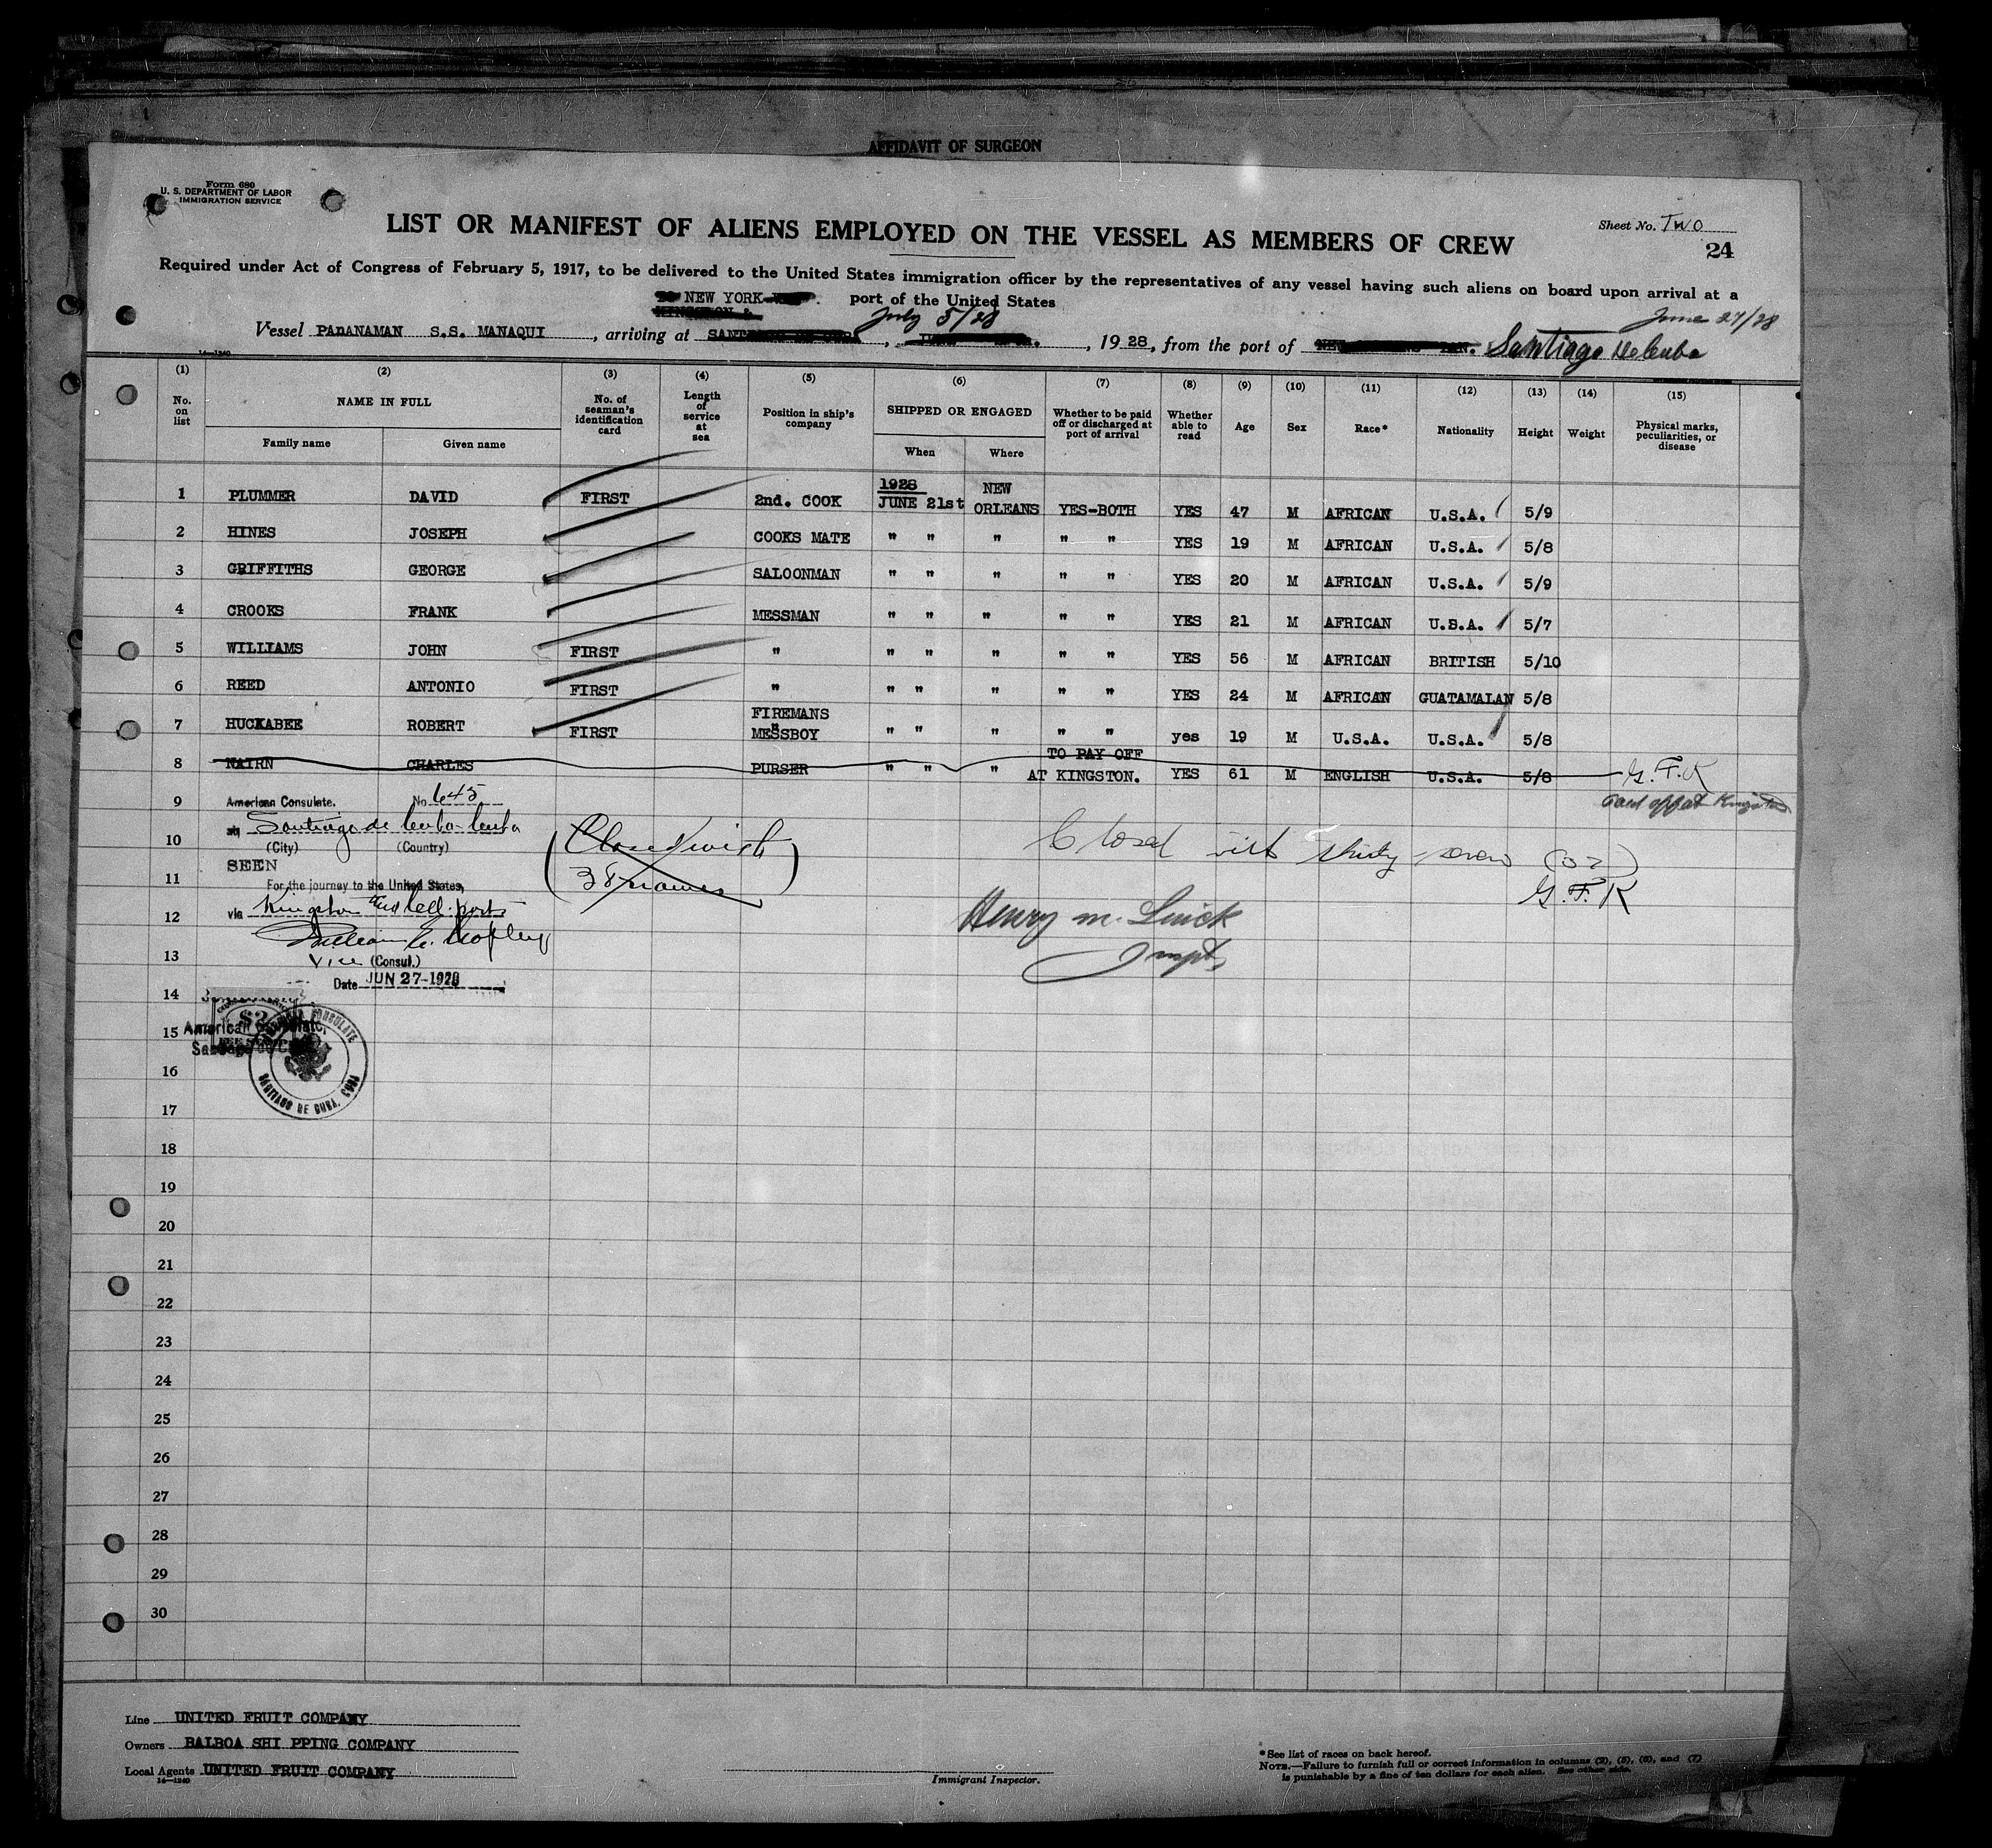 AFFIDAVIT OF SURGEON
Form 680
U. S. DEPARTMENT OF LABOR
IMMIGRATION SERVICE
Sheet No. TWO
24
LIST OR MANIFEST OF ALIENS EMPLOYED ON THE VESSEL AS MEMBERS OF CREW
Required under Act of Congress of February 5, 1917, to be delivered to the United States immigration officer by the representatives of any vessel having such aliens on board upon arrival at a
NEW YORK port of the United States
July 5/28 June 27/28
Vessel PANANAMAN S.S. MANAQUI, arriving at, 1928, from the port of Santiago de Cuba
14—1240
(1) (2) (3) (4) (5) (6) (7) (8) (9) (10) (11) (12) (13) (14) (15)
No. on list NAME IN FULL Family name Given name No. of seaman's identification card Length of service at sea Position in ship's company SHIPPED OR ENGAGED When Where Whether to be paid off or discharged at port of arrival Whether able to read Age Sex Race* Nationality Height Weight Physical marks, peculiarities, or disease
1 PLUMMER DAVID FIRST 2nd. COOK 1928 JUNE 21st NEW ORLEANS YES-BOTH YES 47 M AFRICAN U.S.A. 5/9
2 HINES JOSEPH COOKS MATE " " " " " YES 19 M AFRICAN U.S.A. 5/8
3 GRIFFITHS GEORGE SALOONMAN " " " " " YES 20 M AFRICAN U.S.A. 5/9
4 CROOKS FRANK MESSMAN " " " " " YES 21 M AFRICAN U.S.A. 5/7
5 WILLIAMS JOHN FIRST " " " " " " YES 56 M AFRICAN BRITISH 5/10
6 REED ANTONIO FIRST " " " " " " YES 24 M AFRICAN GUATAMALAN 5/8
7 HUCKABEE ROBERT FIRST FIREMANS MESSBOY " " " " " yes 19 M U.S.A. U.S.A. 5/8
8 NAIRN CHARLES PURSER " " " TO PAY OFF AT KINGSTON. YES 61 M ENGLISH U.S.A. 5/8 G.F.K
Paid off at Kingston
9 American Consulate. No. 645
10 at Santiago de Cuba Cuba
(City) (Country)
SEEN
(Closed with
38 names)
Closed with thirty seven (37)
G.F.K
11 For the journey to the United States,
12 via Kingston and Cell. ports
Henry M.
Inspt.
13 Vice (Consul.)
Date JUN 27-1928
14
15 American Consulate,
Santiago de Cuba
CONSULATE
SANTIAGO DE CUBA, CUBA
16
17
18
19
20
21
22
23
24
25
26
27
28
29
30
Line UNITED FRUIT COMPANY
Owners BALBOA SHI PPING COMPANY
Local Agents UNITED FRUIT COMPANY
14—1240
Immigrant Inspector.
*See list of races on back hereof.
NOTE.—Failure to furnish full or correct information in columns (2), (5), (6), and (7)
is punishable by a fine of ten dollars for each alien. See other side.